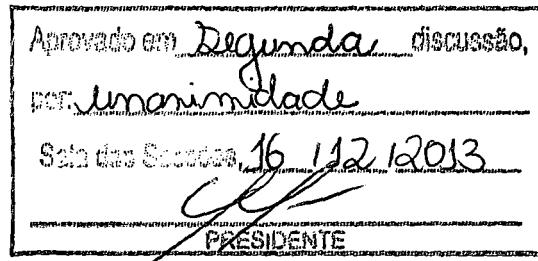 Aprovado em Segunda discussão,
por: unanimidade
Sala das Sessões, 16 / 12 / 2013
PRESIDENTE